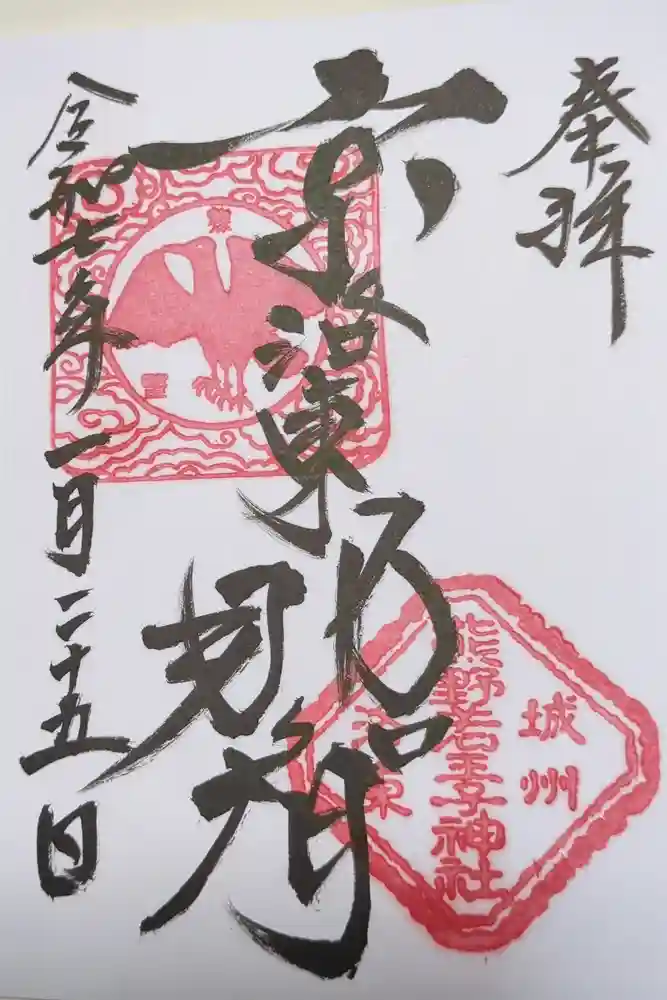 奉拝
京洛東
那智
令和七年一月二十五日
城州
熊野若王子神社
洛東